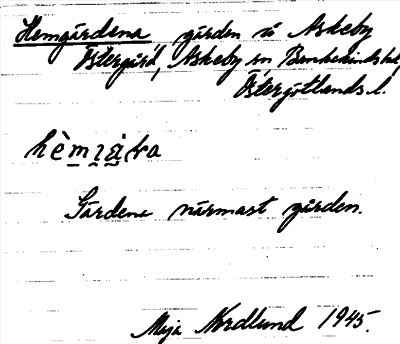 Hemgärdena gärden i Askeby
Östergård, Askeby sn Bankekinds hd,
Östergötlands l.
Gärdena närmast gården.
Maja Nordlund 1945.